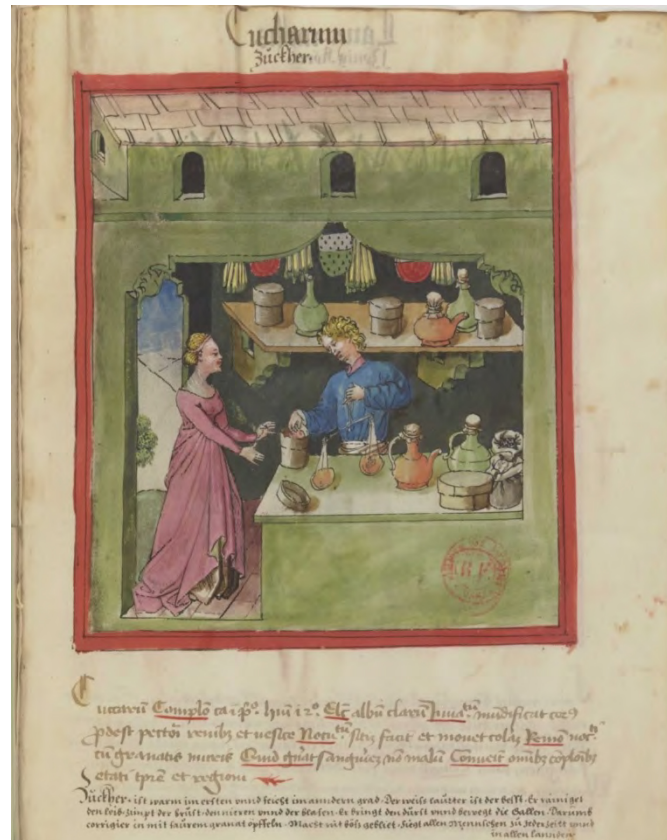 Cucharum
Zuckher.
Cuccarū Complō ca i pº. hūi i 2º. Elcō albū clarū Iuua.tū mūdificat corp9
pdest pectori renibꝫ et uesice Nocu.tū sitī facit et mouet colāꝫ Remo noc.ti
cū granatis muzis Quid gn̄at sanguīeꝫ nō malū Conueit omībꝫ cōplōibꝫ
Etati tp̄iē et regioni
Zuckher. ist warm im ersten vnnd feicht im anndern grad. Der weiss lautter ist der besst. Er rainiget
den leib. zimpt der brust. den nieren vnnd der blasen. Er bringt den durst vnnd bewegt die Gallen. Darumb
corrigier in mit saurem granat opffeln. Macht nit böss gebliet. fiegt allen Mennschen zu jeder zeit vnnd
in allen lanndern